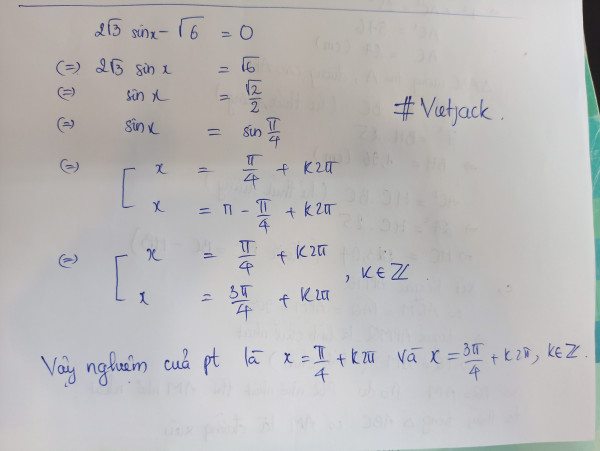 2√3 sinx - √6 = 0
(=) 2√3 sin x = √6
(=) sin x = √2/2
# Vietjack.
(=) sinx = sin π/4
(=) [ x = π/4 + k2π
x = π - π/4 + k2π
(=) [ x = π/4 + k2π
x = 3π/4 + k2π , k∈ℤ.
Vậy nghiệm của pt là x = π/4 + k2π và x = 3π/4 + k2π, k∈ℤ.